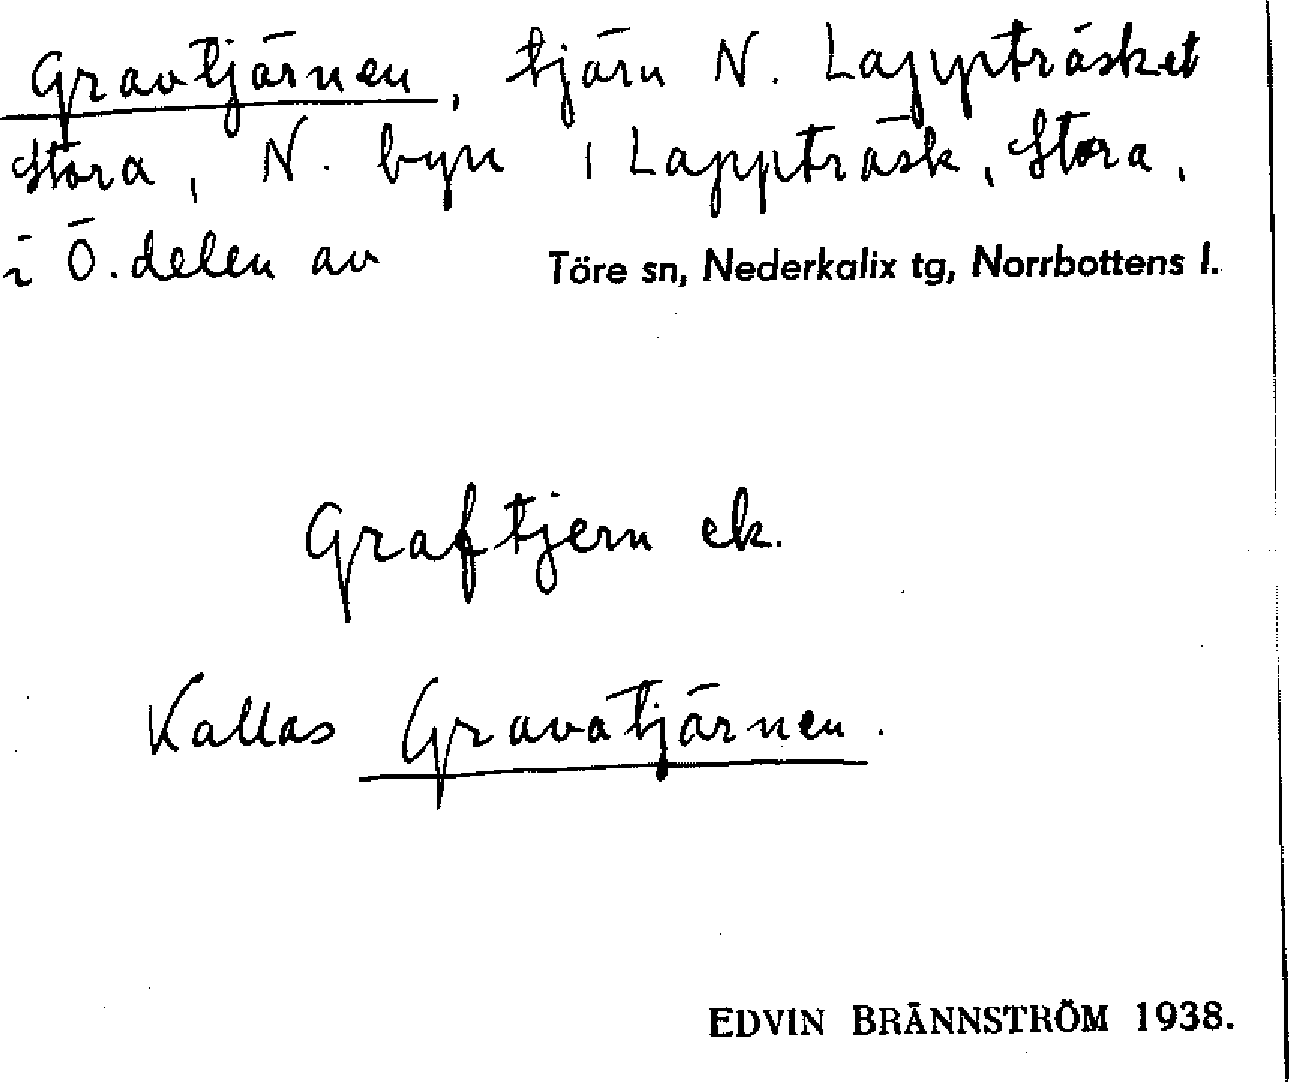 Gravtjärnen, tjärn N. Lappträsket
Stora, N. byn i Lappträsk, Stora,
i Ö. delen av Töre sn, Nederkalix tg, Norrbottens l.
Graftjern ek.
Kallas Gravatjärnen.
EDVIN BRÄNNSTRÖM 1938.